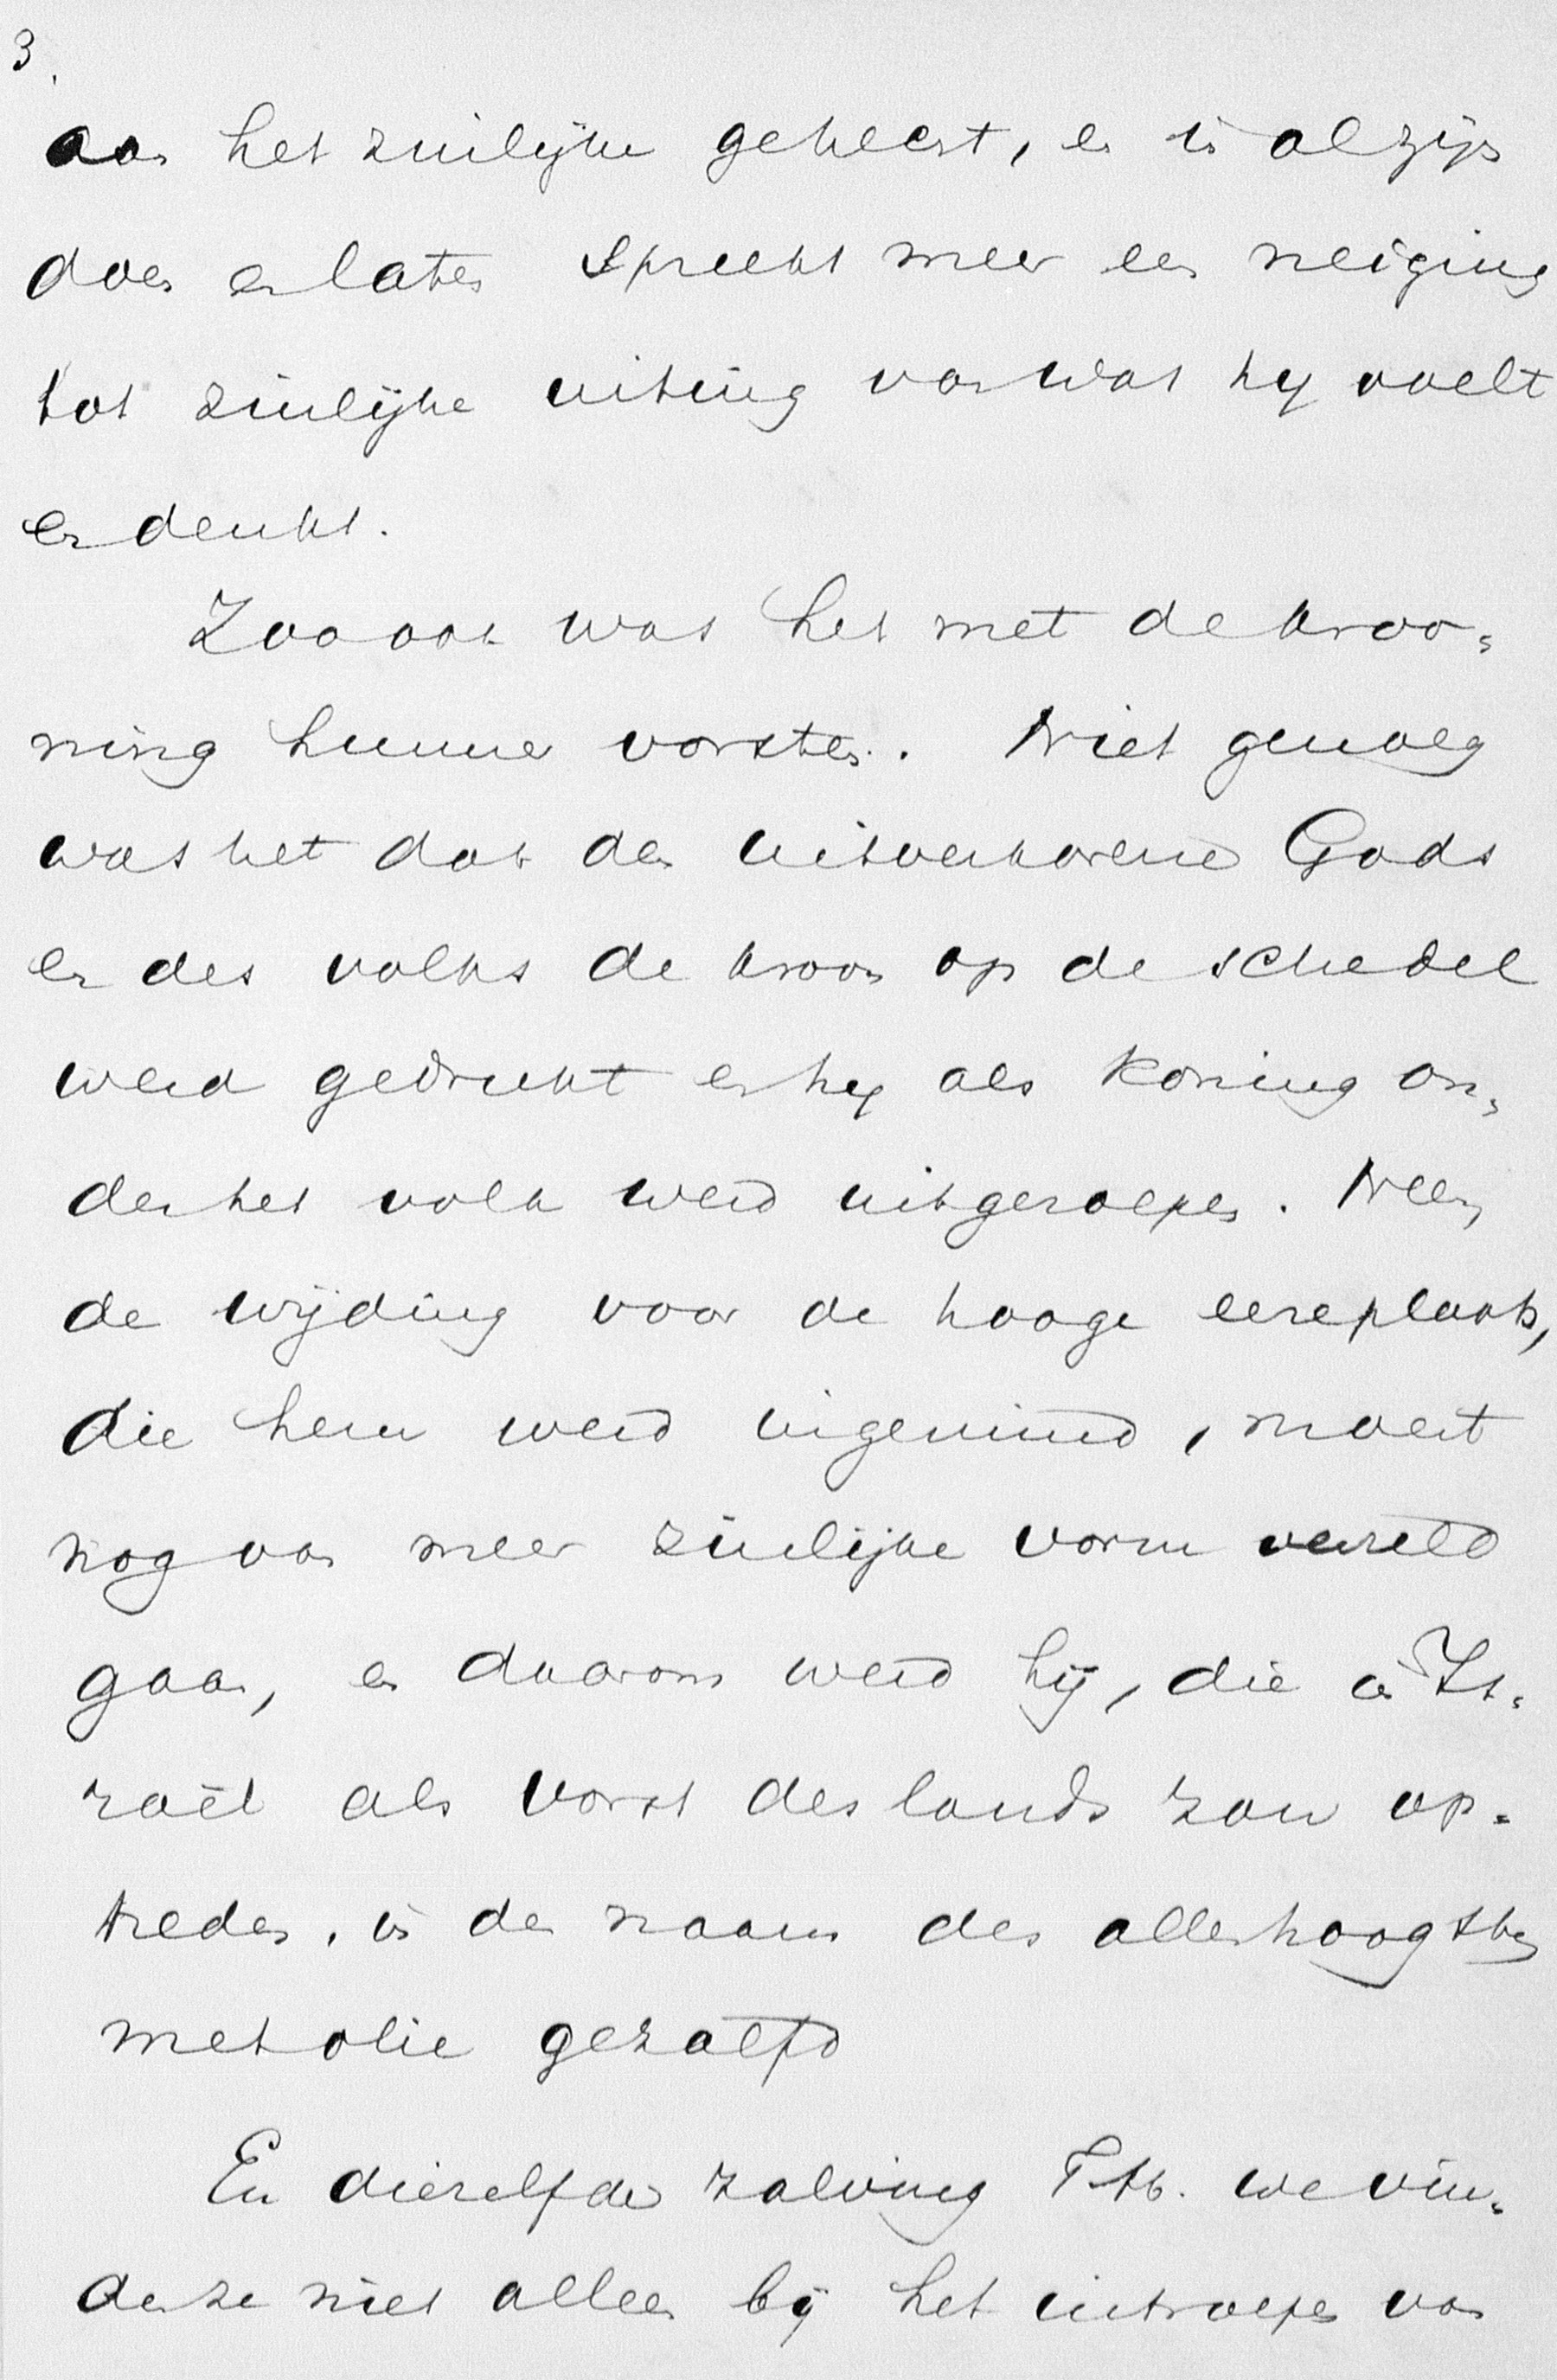 3.
aan het zinlijke gehecht, en in al zijn
doen en laten spreekt meer een neiging
tot zinlijke uiting van wat hy voelt
en denkt.
Zoo ook was het met de kroo-
ning hunner vorsten. Niet genoeg
was het dat den uitverkorene Gods
en des volks de kroon op de schedel
werd gedrukt en hy als koning on-
der het volk werd uitgeroepen. Neen,
de wijding voor de hooge eereplaats,
die hem werd ingeruimd, moest
nog van meer zinlijke vorm verzeld
gaan, en daarom werd hij, die in Is-
raël als vorst des lands zou op-
treden, in den naam des allerhoogsten
met olie gezalfd
En diezelfde zalving T. H. we vin-
den ze niet alleen bij het uitroepen van